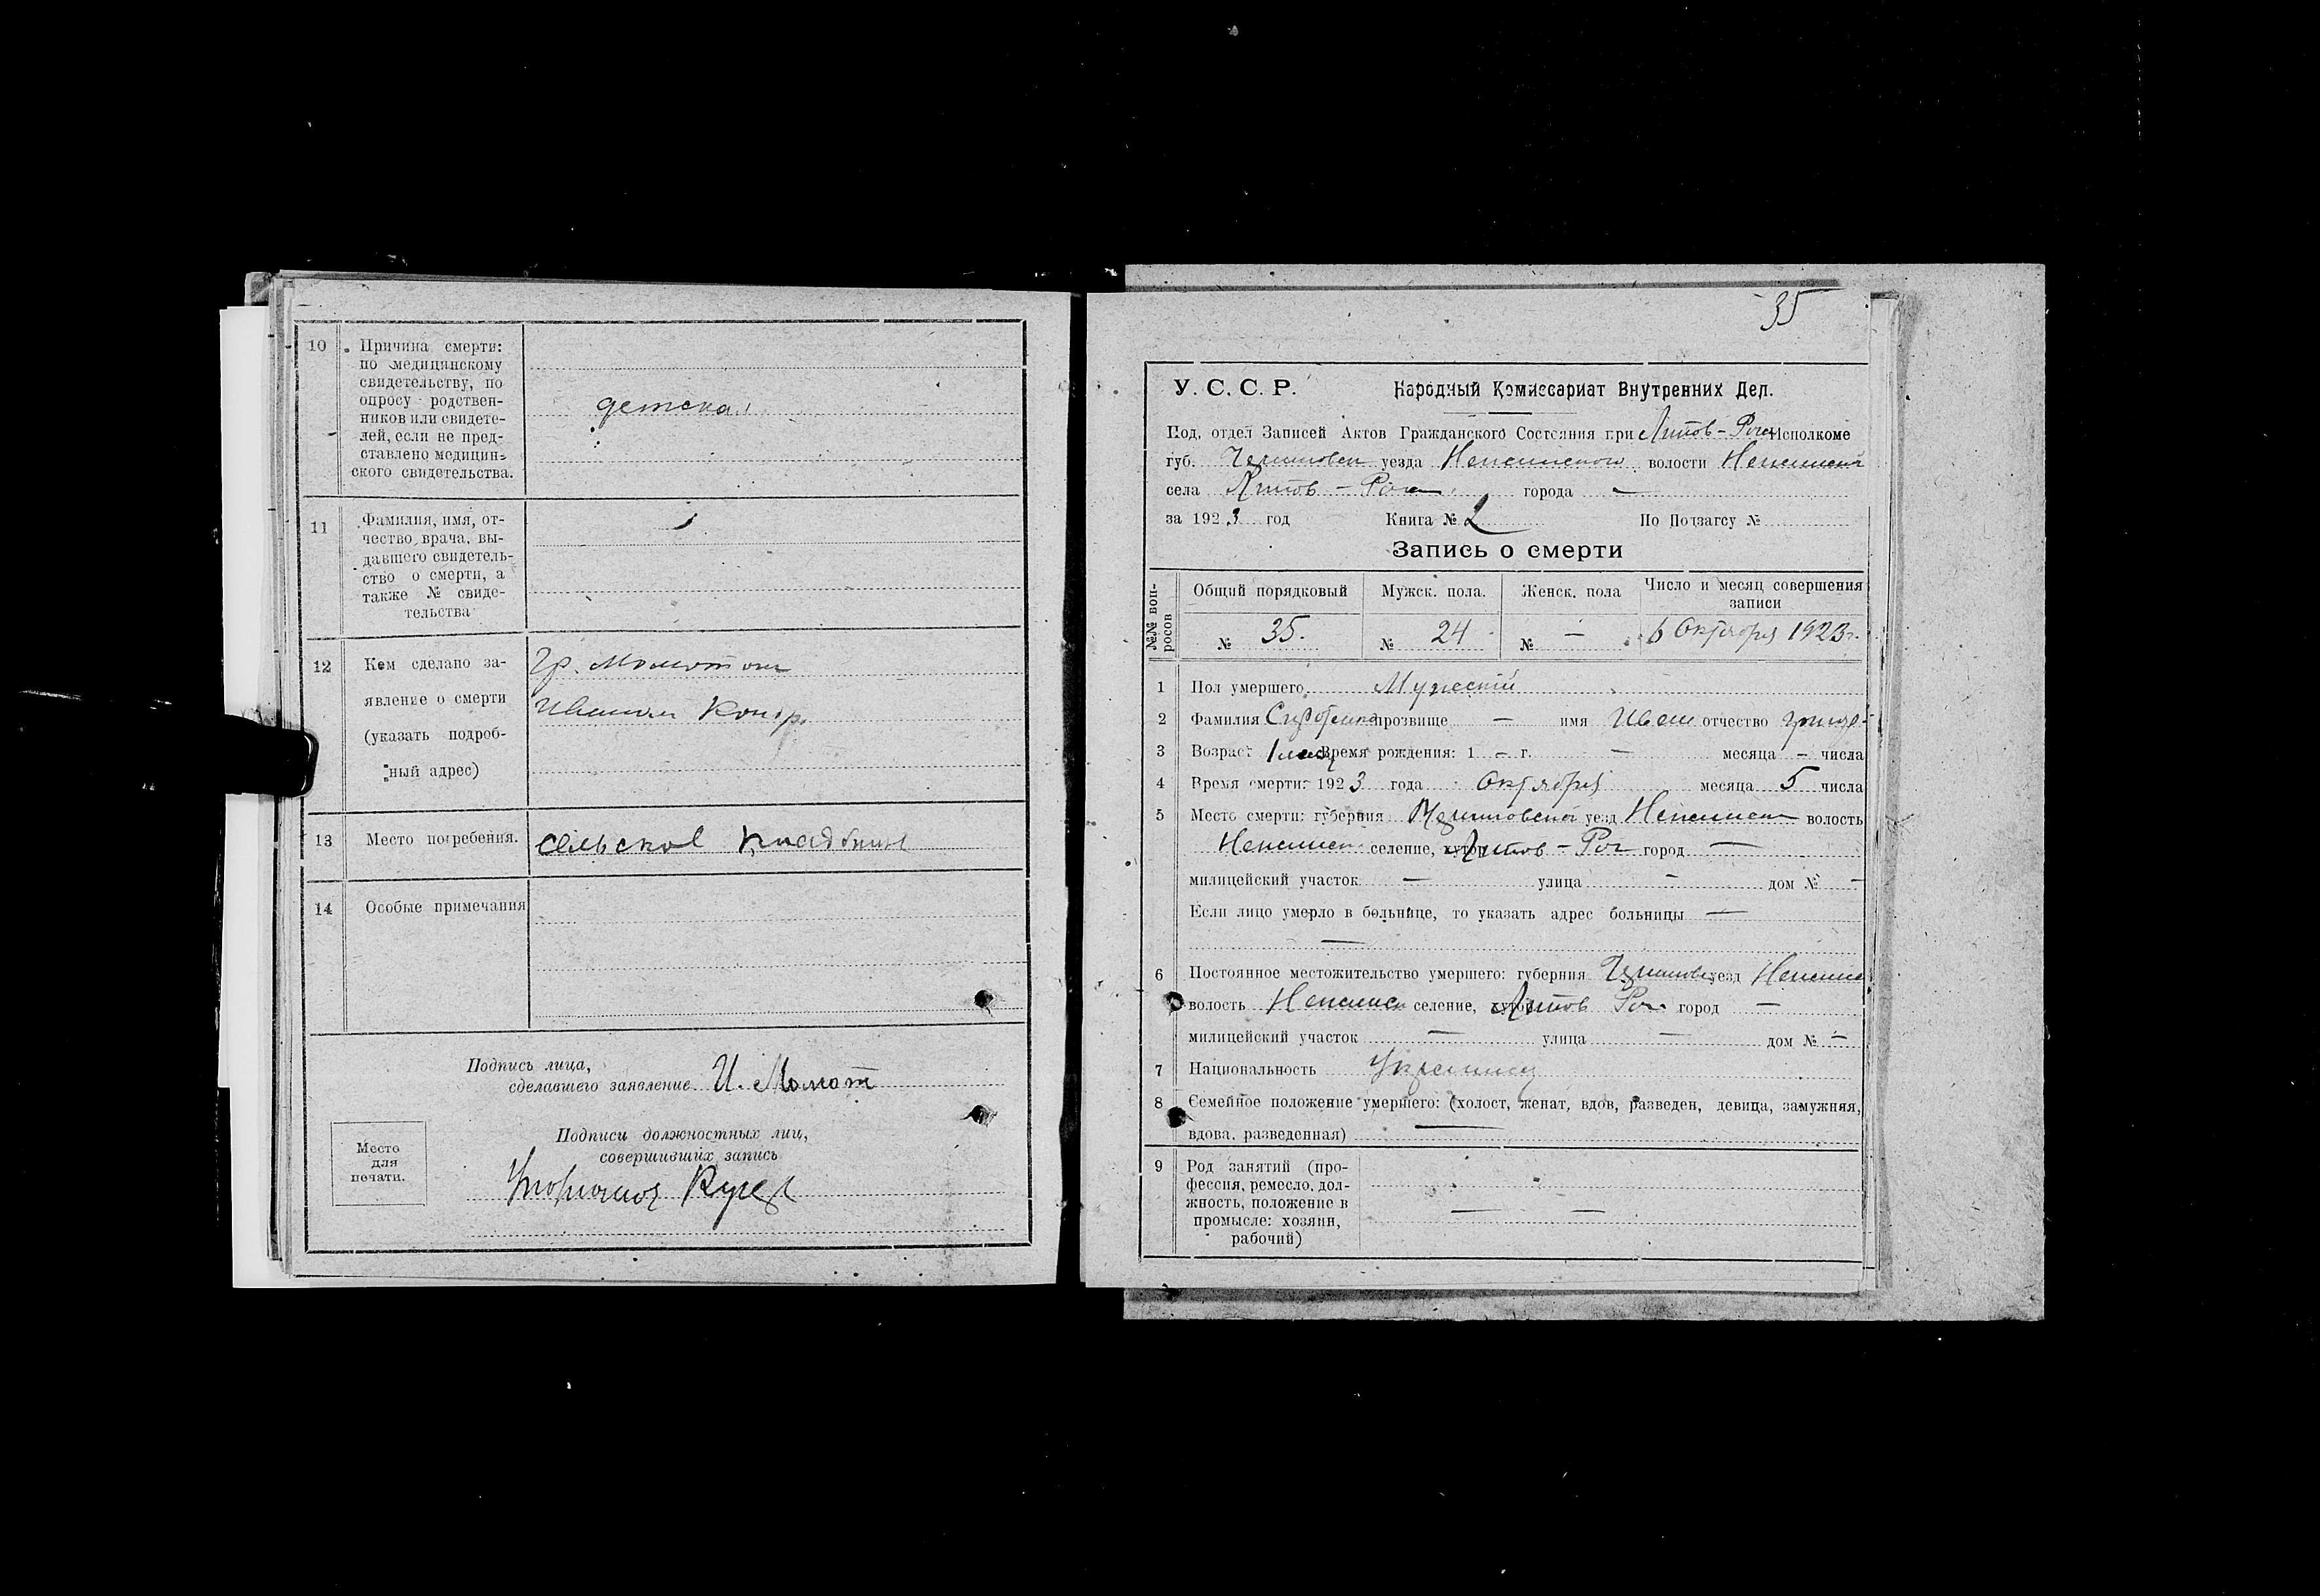 10 Причина смерти:
по медицинскому
свидетельству, по
опросу родствен-
ников или свидете-
лей, если не пред-
ставлено медицин-
ского свидетельства.
детская
11 Фамилия, имя, от-
чество врача, вы-
давшего свидетель-
ство о смерти, а
также № свиде-
тельства
12 Кем сделано за-
явление о смерти
(указать подроб-
ный адрес)
Гр. Моломотом
Иваном Кондр.
13 Место погребения. сельское кладбище
14 Особые примечания
Подпись лица,
сделавшего заявление И.
Подписи должностных лиц,
совершивших запись
Место
для
печати.
35
У. С. С. Р. Народный Комиссариат Внутренних Дел.
Под. отдел Записей Актов Гражданского Состояния при Липов-Рог Исполкоме
губ. Черниговск уезда Нежинского волости Нежинской
села Липов-Рог города —
за 1923 год Книга № 2 По Подзагсу №
Запись о смерти
№№ воп-
росов
Общий порядковый Мужск. пола. Женск. пола Число и месяц совершения
записи
№ 35. № 24 № — 6 Октября 1923 г.
1 Пол умершего Мужской
2 Фамилия прозвище — имя Иван отчество
3 Возраст 1 мес Время рождения: 1 — г. — месяца — числа
4 Время смерти: 1923 года Октября месяца 5 числа
5 Место смерти: губерния Черниговской уезд Нежинск волость
Нежинск селение, хутор Липов-Рог город —
милицейский участок — улица — дом № —
Если лицо умерло в больнице, то указать адрес больницы —
—
6 Постоянное местожительство умершего: губерния Чернигов уезд Нежинс
волость Нежинск селение, хутор Липов Рог город —
милицейский участок — улица — дом № —
7 Национальность Украинец
8 Семейное положение умершего: (холост, женат, вдов, разведен, девица, замужняя,
вдова, разведенная) —
9 Род занятий (про-
фессия, ремесло, дол-
жность, положение в
промысле: хозяин,
рабочий)
— —